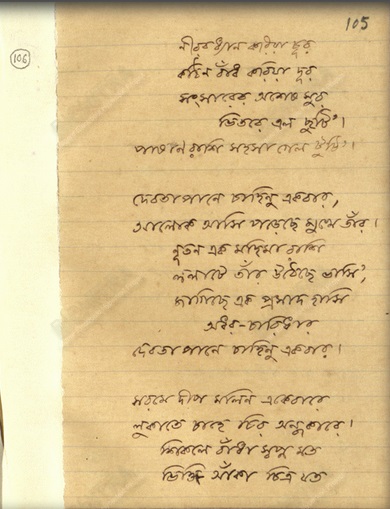 105
106
নীরব ধ্যান করিয়া চুর
কঠিন বাঁধ করিয়া দূর
সংসারের অশেষ সুর
ভিতরে এল ছুটি'।
পাষাণরাশি সহসা গেল টুটি'।
দেবতাপানে চাহিনু একবার,
আলোক আসি পড়েছে মুখে তাঁর।
নূতন এক মহিমারাশি
ললাটে তাঁর উঠেছে ভাসি',
জাগিছে এক প্রসাদ হাসি
অধর-চারিধার
দেবতাপানে চাহিনু একবার।
সরমে দীপ মলিন একেবারে
লুকাতে চাহে চির অন্ধকারে।
শিকলে বাঁধা স্বপ্ন মত
ভিত্তি আঁকা চিত্র যত